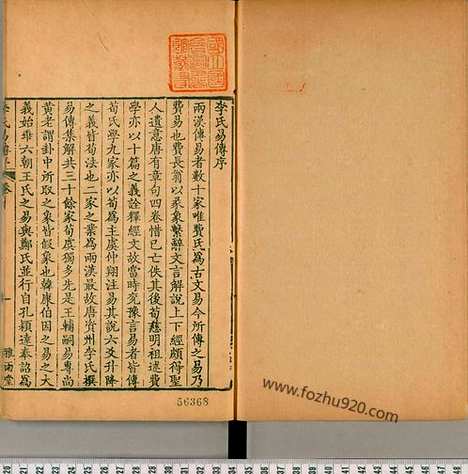 李氏易傳序
兩漢傳易者數十家唯費氏爲古文易今所傳之易乃
費易也費長翁以彖象繫辭文言解說上下經頗得聖
人遺意唐有章句四卷惜已亡佚其後荀慈明祖述費
學亦以十篇之義詮釋經文故當時兗豫言易者皆傳
荀氏學九家亦以荀爲主虞仲翔注易其說六爻升降
之義皆荀法也二家之業爲兩漢最故唐資州李氏撰
易傳集解共三十餘家荀虞獨多先是王輔嗣易專尚
黃老謂卦中所取之象皆假象也韓康伯因之易之大
義始乖六朝王氏之易與鄭氏並行自孔穎達奉詔爲
雅雨堂
56368
www.fozhu920.com